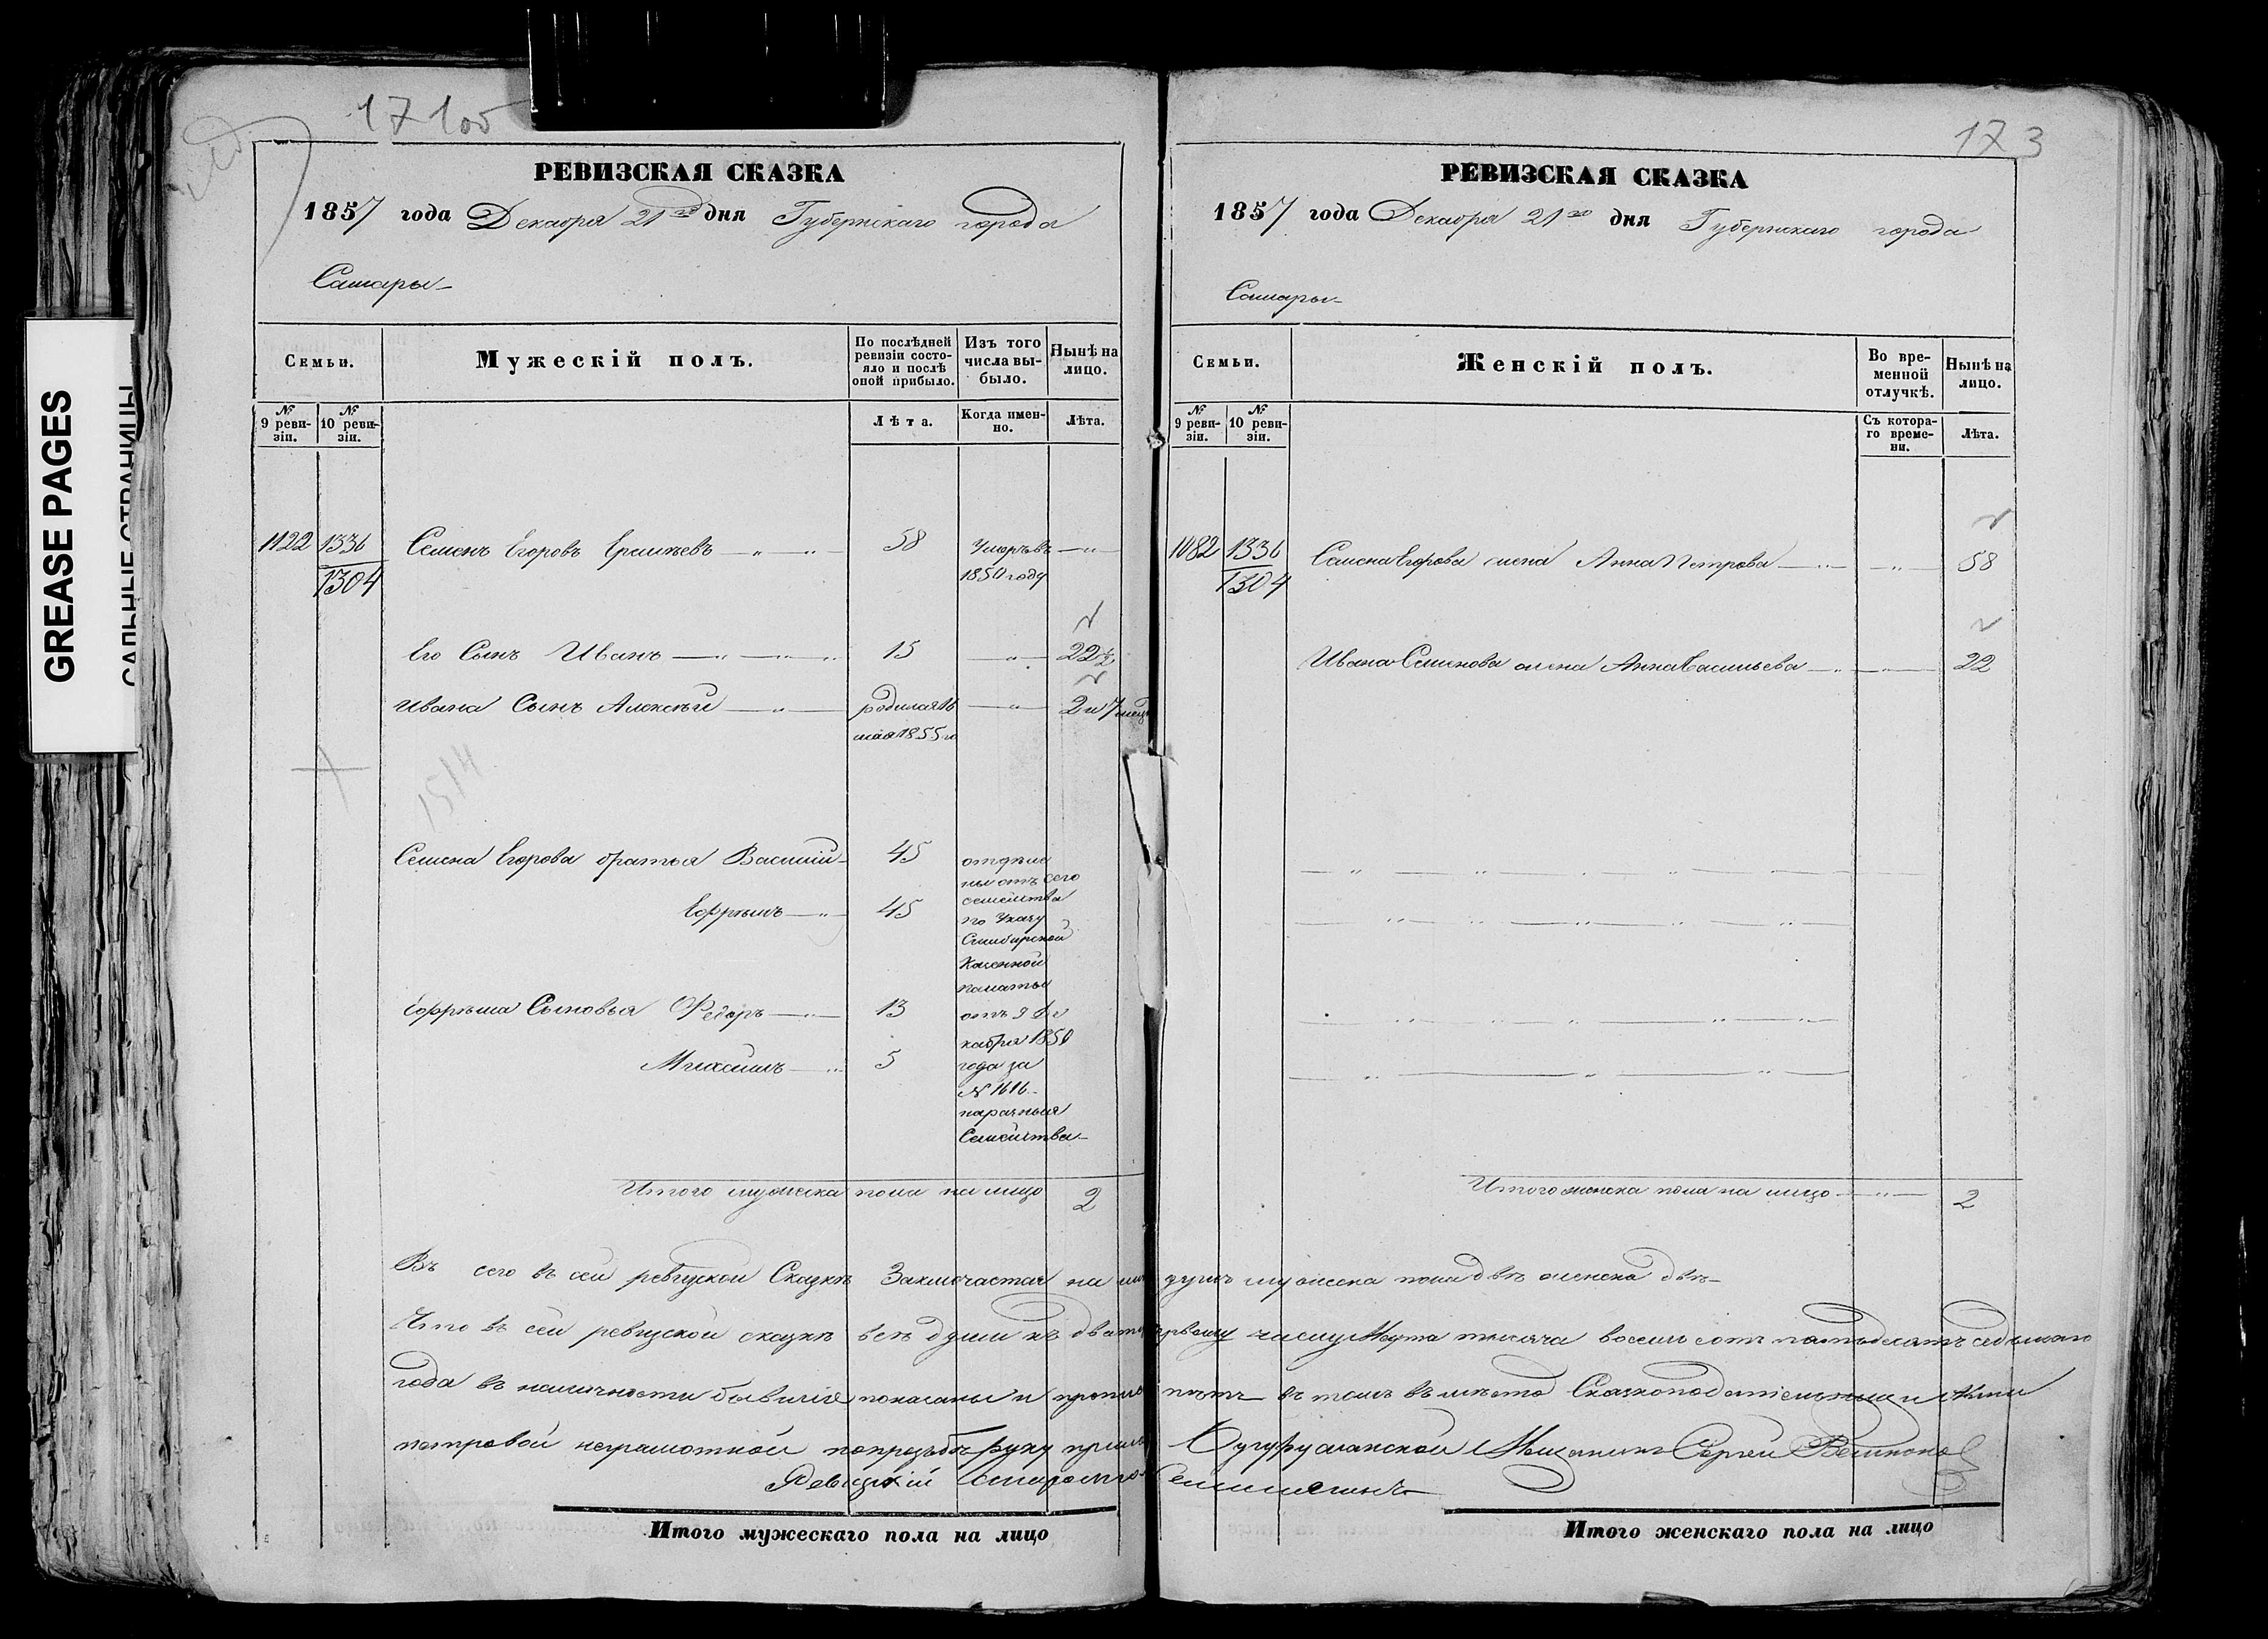 171об
РЕВИЗСКАЯ СКАЗКА
1857 года Декабря 21го дня Губернскаго города
Самары
Семьи.
Мужескій полъ.
По послѣдней ревизіи состояло и послѣ оной прибыло.
Изъ того числа выбыло.
Нынѣ на лицо.
№ 9 ревизіи.
№ 10 ревизіи.
Лѣта.
Когда именно.
Лѣта.
1122 1336 Семенъ Егоровъ 58 Умеръ въ
1304 1850 году
Его Сынъ Иванъ 15 22 ½
Ивана Сынъ Алексѣй родился 16 2 и 7 мец
мая 1855 го
1514
Семена Егорова братья Василій 45 отделе
ны отъ сего
семейства
Ефремъ 45 по Указу
Симбирской
Казенной
палаты
Ефрема Сыновья Федоръ 13 отъ 9 Де
кабря 1850
Михаилъ 5 года за
№ 1616
на
Семейства
Итого мужеска пола на лицо 2
173
РЕВИЗСКАЯ СКАЗКА
1857 года Декабря 21го дня Губернскаго города
Самары
Семьи.
Женскій полъ.
Во временной отлучкѣ.
Нынѣ на лицо.
№ 9 ревизіи.
№ 10 ревизіи.
Съ котораго времени.
Лѣта.
1082 1336 Семена Егорова жена Анна Петрова 58
1304
Ивана Семенова жена Анна Васильева 22
Итого женска пола на лицо 2
сего въ сей ревизской Сказкѣ Заключается на ли душъ мужеска пола двѣ женска двѣ
Что въ сей ревизской сказкѣ всѣ души къ двадц ервому числу Марта тысяча восемь сотъ пятьдесятъ седьмаго
года въ наличности бывшіе показаны и пропис нѣтъ въ томъ въмѣсто Сказкоподательницы Анны
петровой неграмотной попрозьбѣ руку прилож Бугурусланской Мещанинъ Сергей
Ревизкій Старо
Итого мужескаго пола на лицо
Итого женскаго пола на лицо
GREASE PAGES
САЛЬНЫЕ СТРАНИЦЫ